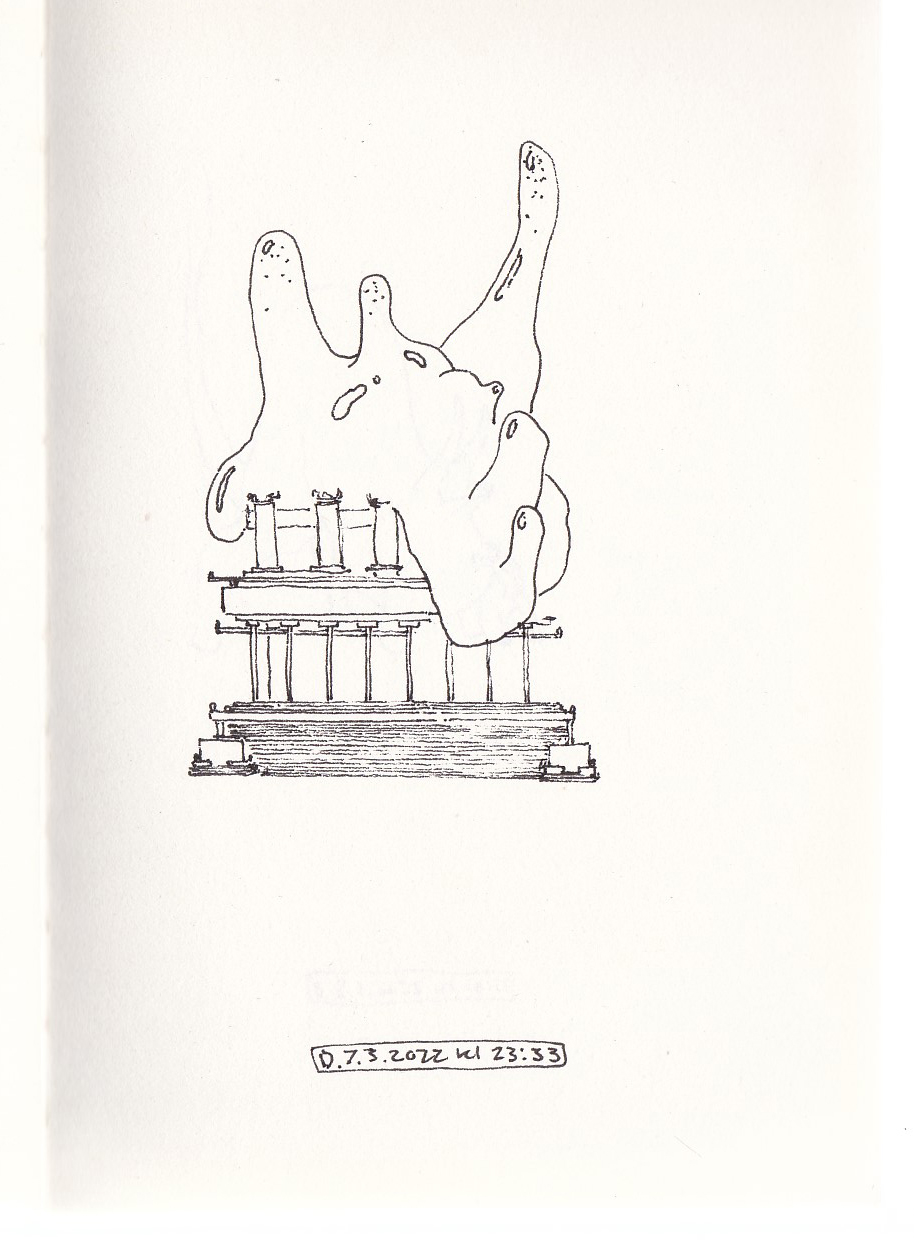 D.7.3.2022 kl 23:33